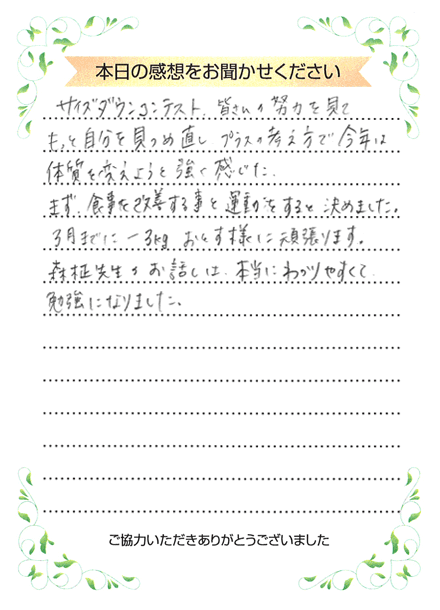 本日の感想をお聞かせください
サイズダウンコンテスト、皆さんの努力を見て
もっと自分を見つめ直し、プラスの考え方で今年は
体質を変えようと強く感じた。
まず、食事を改善する事と運動をすると決めました。
3月までに-3kgおとす様に頑張ります。
先生のお話しは、本当にわかりやすくて
勉強になりました。
ご協力いただきありがとうございました